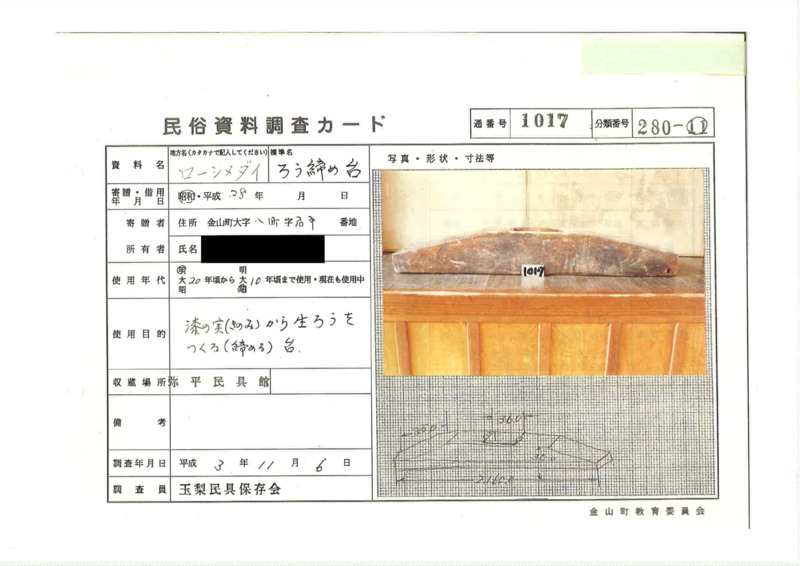 民俗資料調査カード
通番号 1017 分類番号 280-11
資料名 地方名(カタカナで記入してください) ローンメダイ 標準名 ろう締め台
寄贈・借用年月日 昭和・平成 28年 月 日
寄贈者 住所 金山町大字 八町 字 居平 番地
所有者 氏名
使用年代 明大昭 20年頃から 明大昭 10年頃まで使用・現在も使用中
使用目的 漆の実(きのみ)から生ろうを
つくる(締める)台.
収蔵場所 弥平民具館
備考
調査年月日 平成 3年 11月 6日
調査員 玉梨民具保存会
写真・形状・寸法等
1017
36.0
30.0
2,160.0
金山町教育委員会